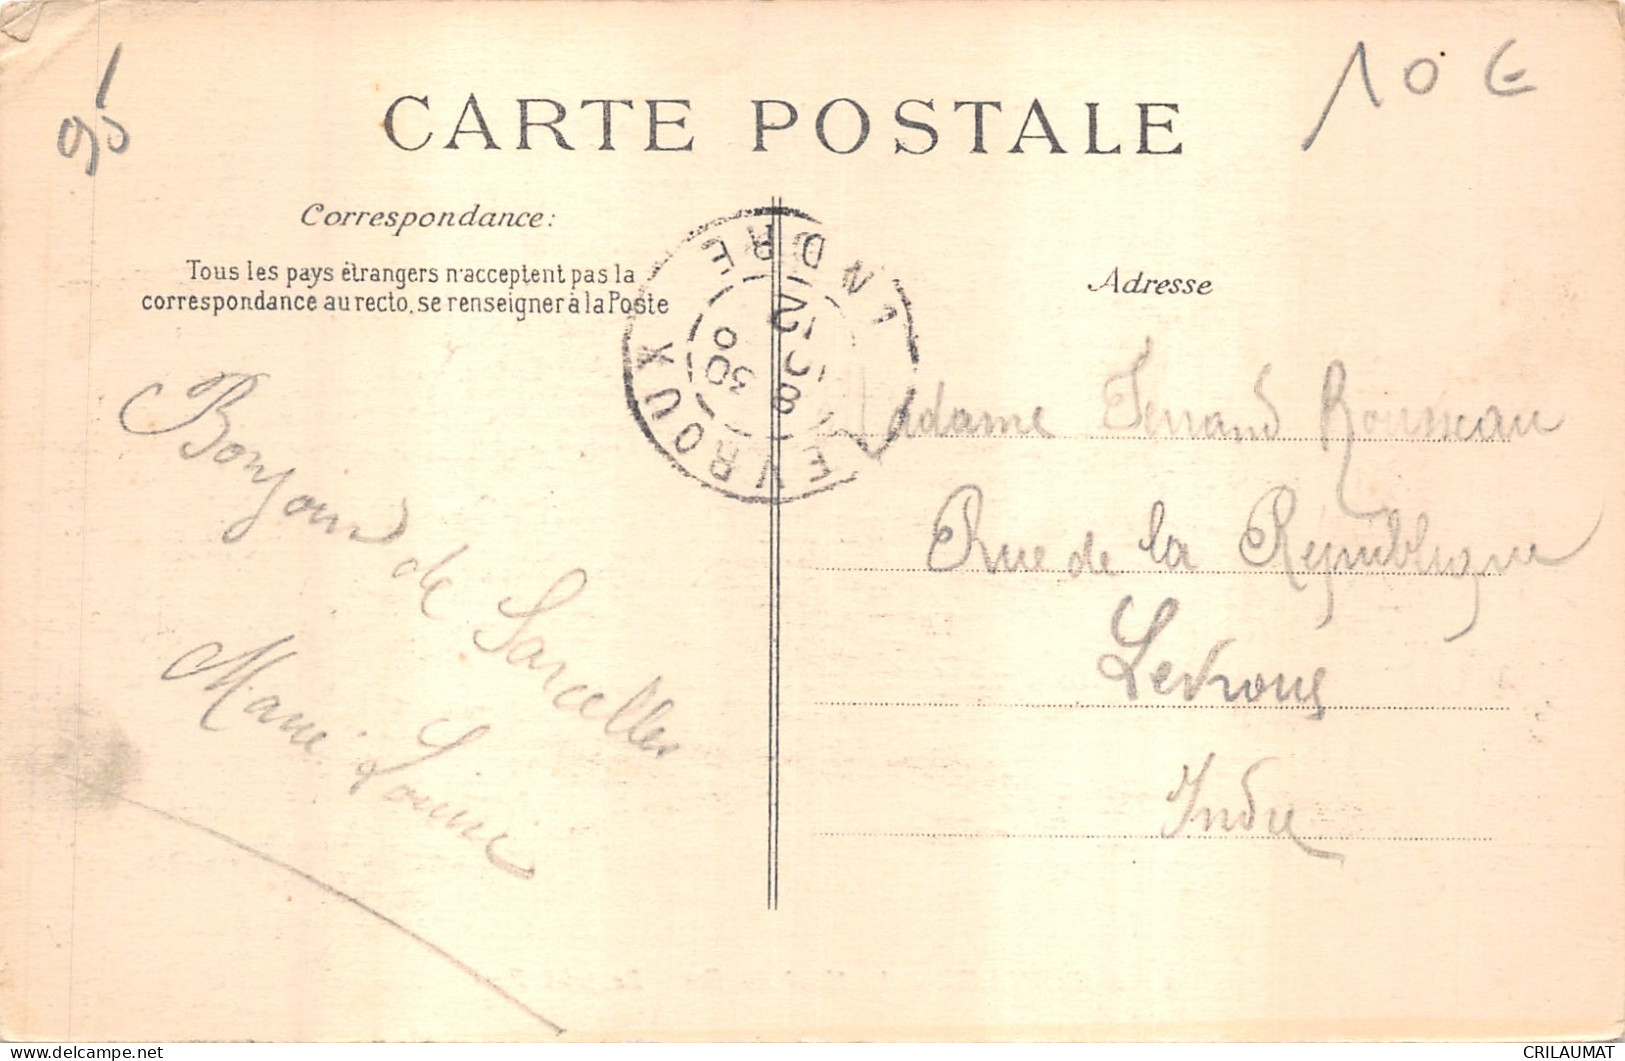 95
10 €
CARTE POSTALE
Correspondance:
Tous les pays étrangers n'acceptent pas la
correspondance au recto, se renseigner à la Poste
Adresse
LEVROUX
INDRE
Bonjour de Sarcelles
Marie Louise
Madame Fernand Rousseau
Rue de la République
Levroux
Indre
www.delcampe.net
CRILAUMAT